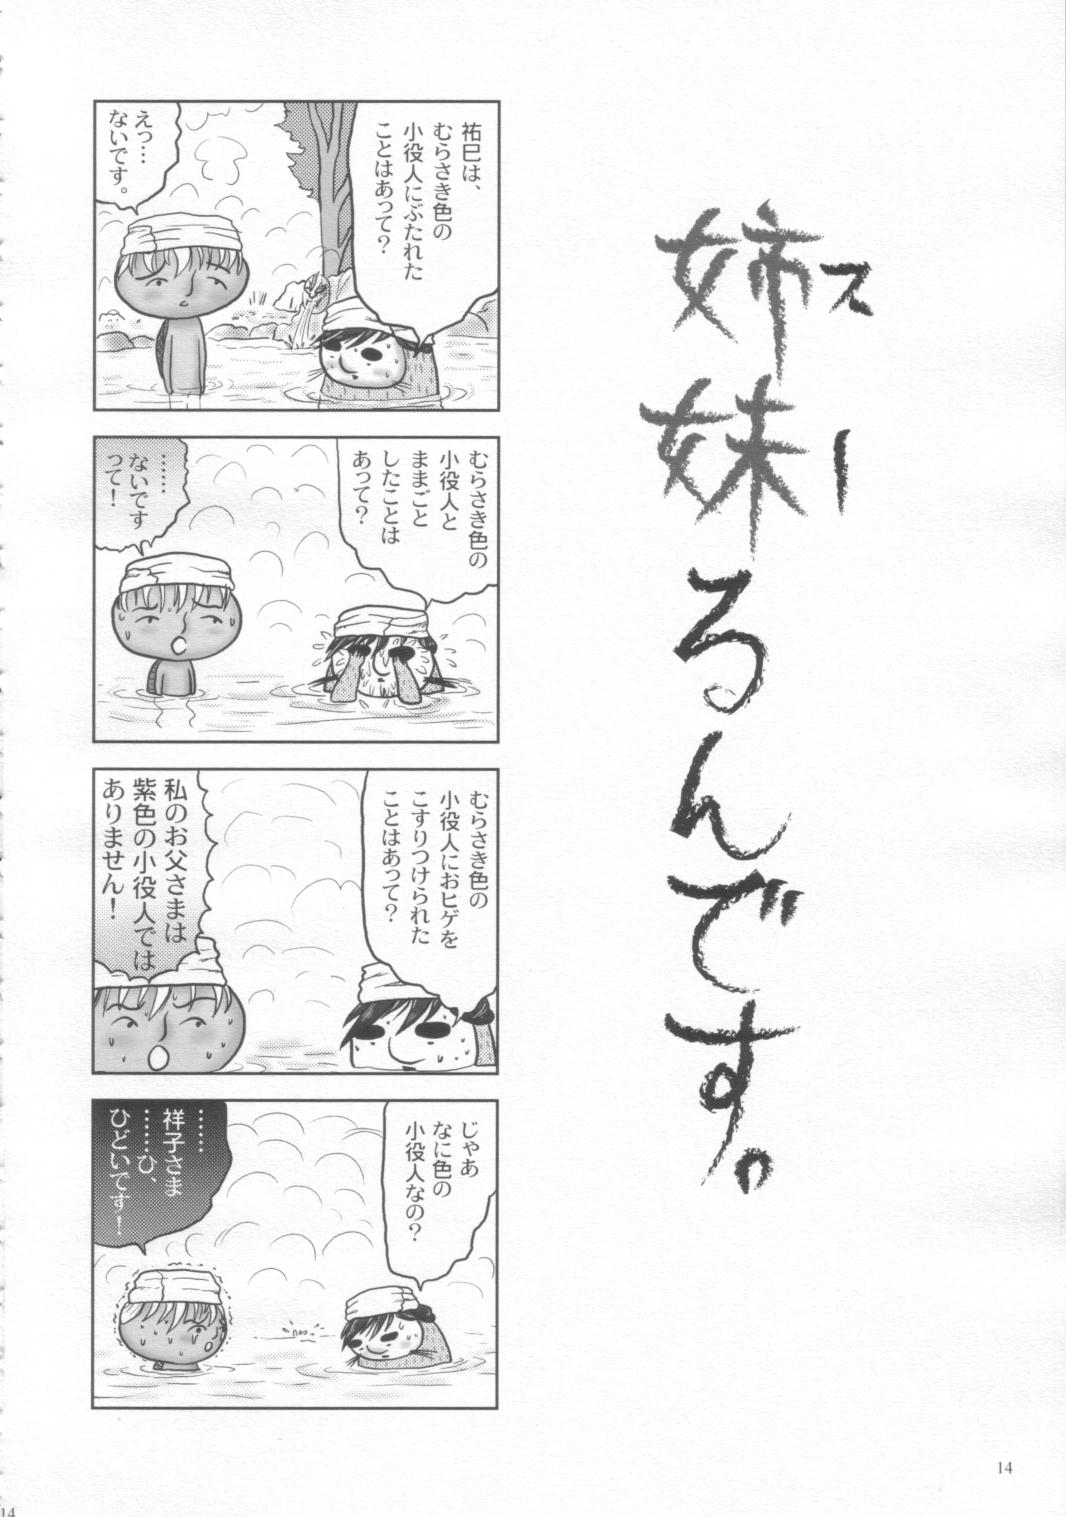 姉妹るんです。
スール
祐巳は、
むらさき色の
小役人にぶたれた
ことはあって？
えっ…
ないです。
むらさき色の
小役人と
ままごと
したことは
あって？
……
ないです
って！
むらさき色の
小役人におヒゲを
こすりつけられた
ことはあって？
私のお父さまは
紫色の小役人では
ありません！
じゃあ
なに色の
小役人なの？
……
祥子さま
……ひ、
ひどいです！
14
14